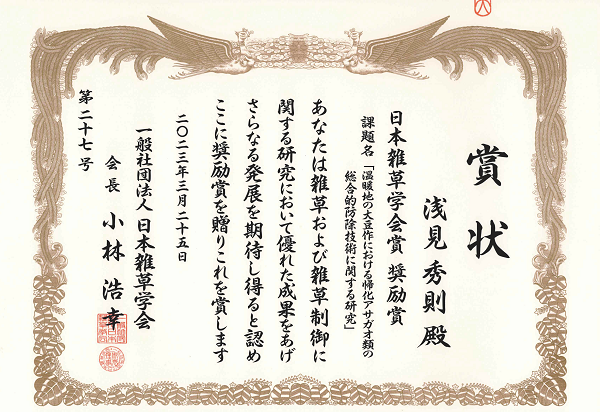 賞状
浅見秀則殿
日本雑草学会賞 奨励賞
課題名「温暖地の大豆作における帰化アサガオ類の
総合的防除技術に関する研究」
あなたは雑草および雑草制御に
関する研究において優れた成果をあげ
さらなる発展を期待し得ると認め
ここに奨励賞を贈りこれを賞します
二〇二三年三月二十五日
一般社団法人 日本雑草学会
会長 小林浩幸
第二十七号